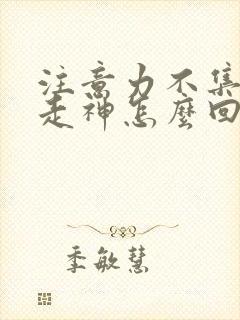 注意力不集
走神怎麼回
季敏慧